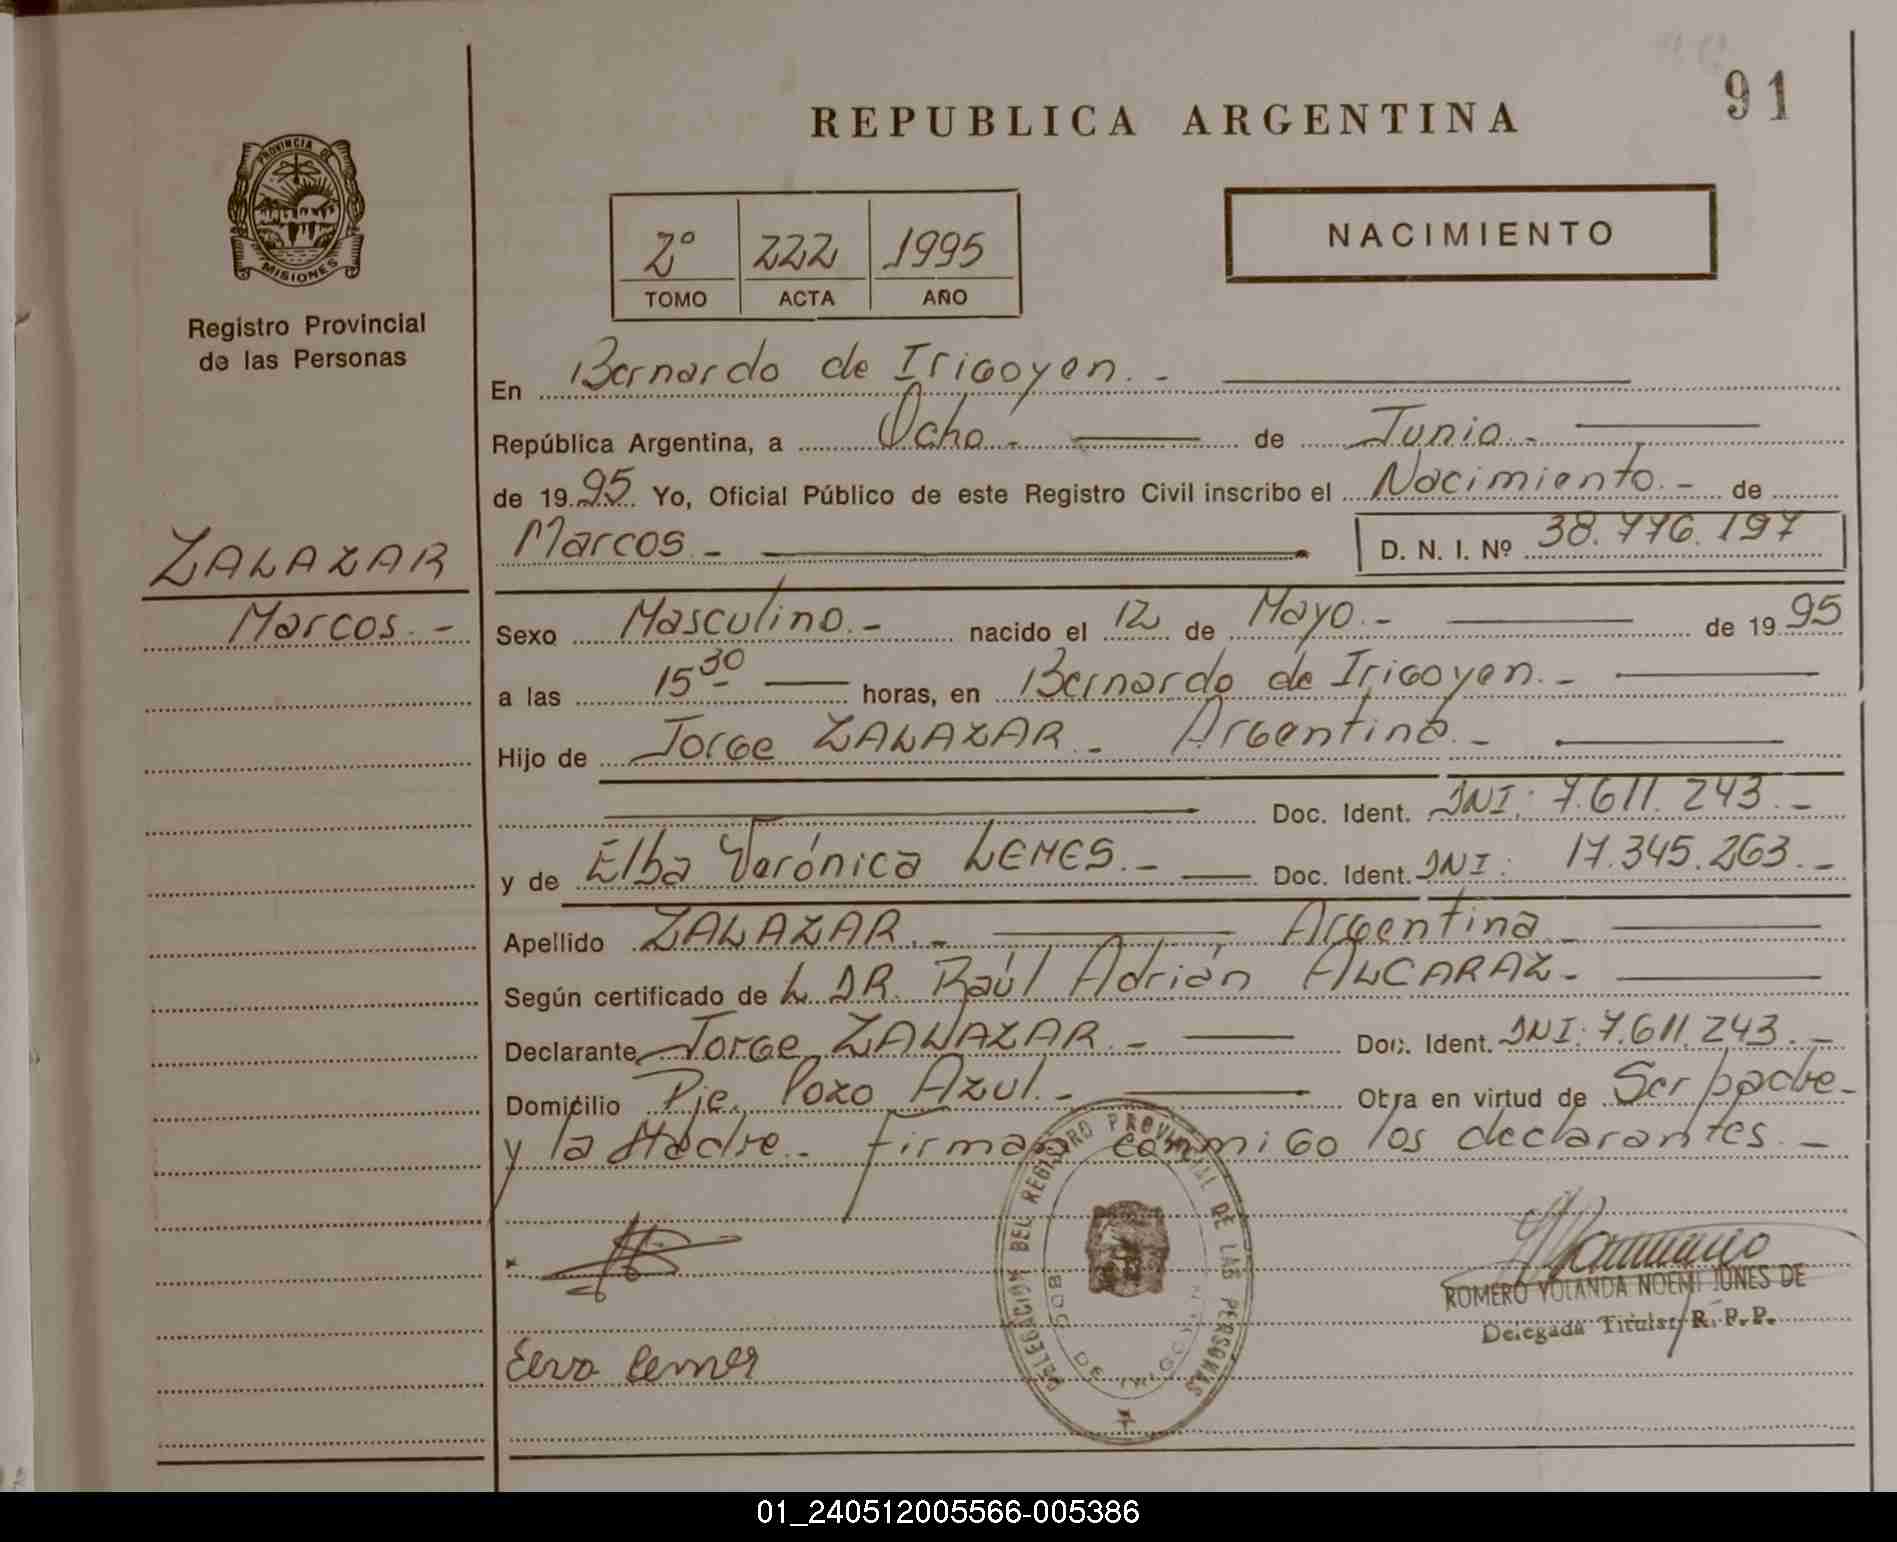 91
REPUBLICA ARGENTINA
PROVINCIA DE
MISIONES
Registro Provincial
de las Personas
2º 222 1995
TOMO ACTA AÑO
NACIMIENTO
En Bernardo de Irigoyen.-
República Argentina, a Ocho.- de Junio.-
de 1995 Yo, Oficial Público de este Registro Civil inscribo el Nacimiento.- de
ZALAZAR
Marcos.-
Marcos.- D. N. I. Nº 38.776.197
Sexo Masculino.- nacido el 12 de Mayo.- de 1995
a las 15 30 horas, en Bernardo de Irigoyen.-
Hijo de Jorge ZALAZAR.- Argentino.-
Doc. Ident. DNI: 7.611.243.-
y de Elba Verónica LEMES.- Doc. Ident. DNI: 17.345.263.-
Apellido ZALAZAR.- Argentina.-
Según certificado de L DR. Raúl Adrián ALCARAZ-
Declarante Jorge ZALAZAR.- Doc. Ident. DNI: 7.611.243.-
Domicilio Pje. Pozo Azul.- Obra en virtud de Ser padre-
y la Madre.- firman conmigo los declarantes.-
DELEGACION DEL REGISTRO PROVINCIAL DE LAS PERSONAS
BDO. DE IRIGOYEN
ROMERO YOLANDA NOEMI JUNES DE
Delegada Titular R. P. P.
Elva Lemes
01_240512005566-005386